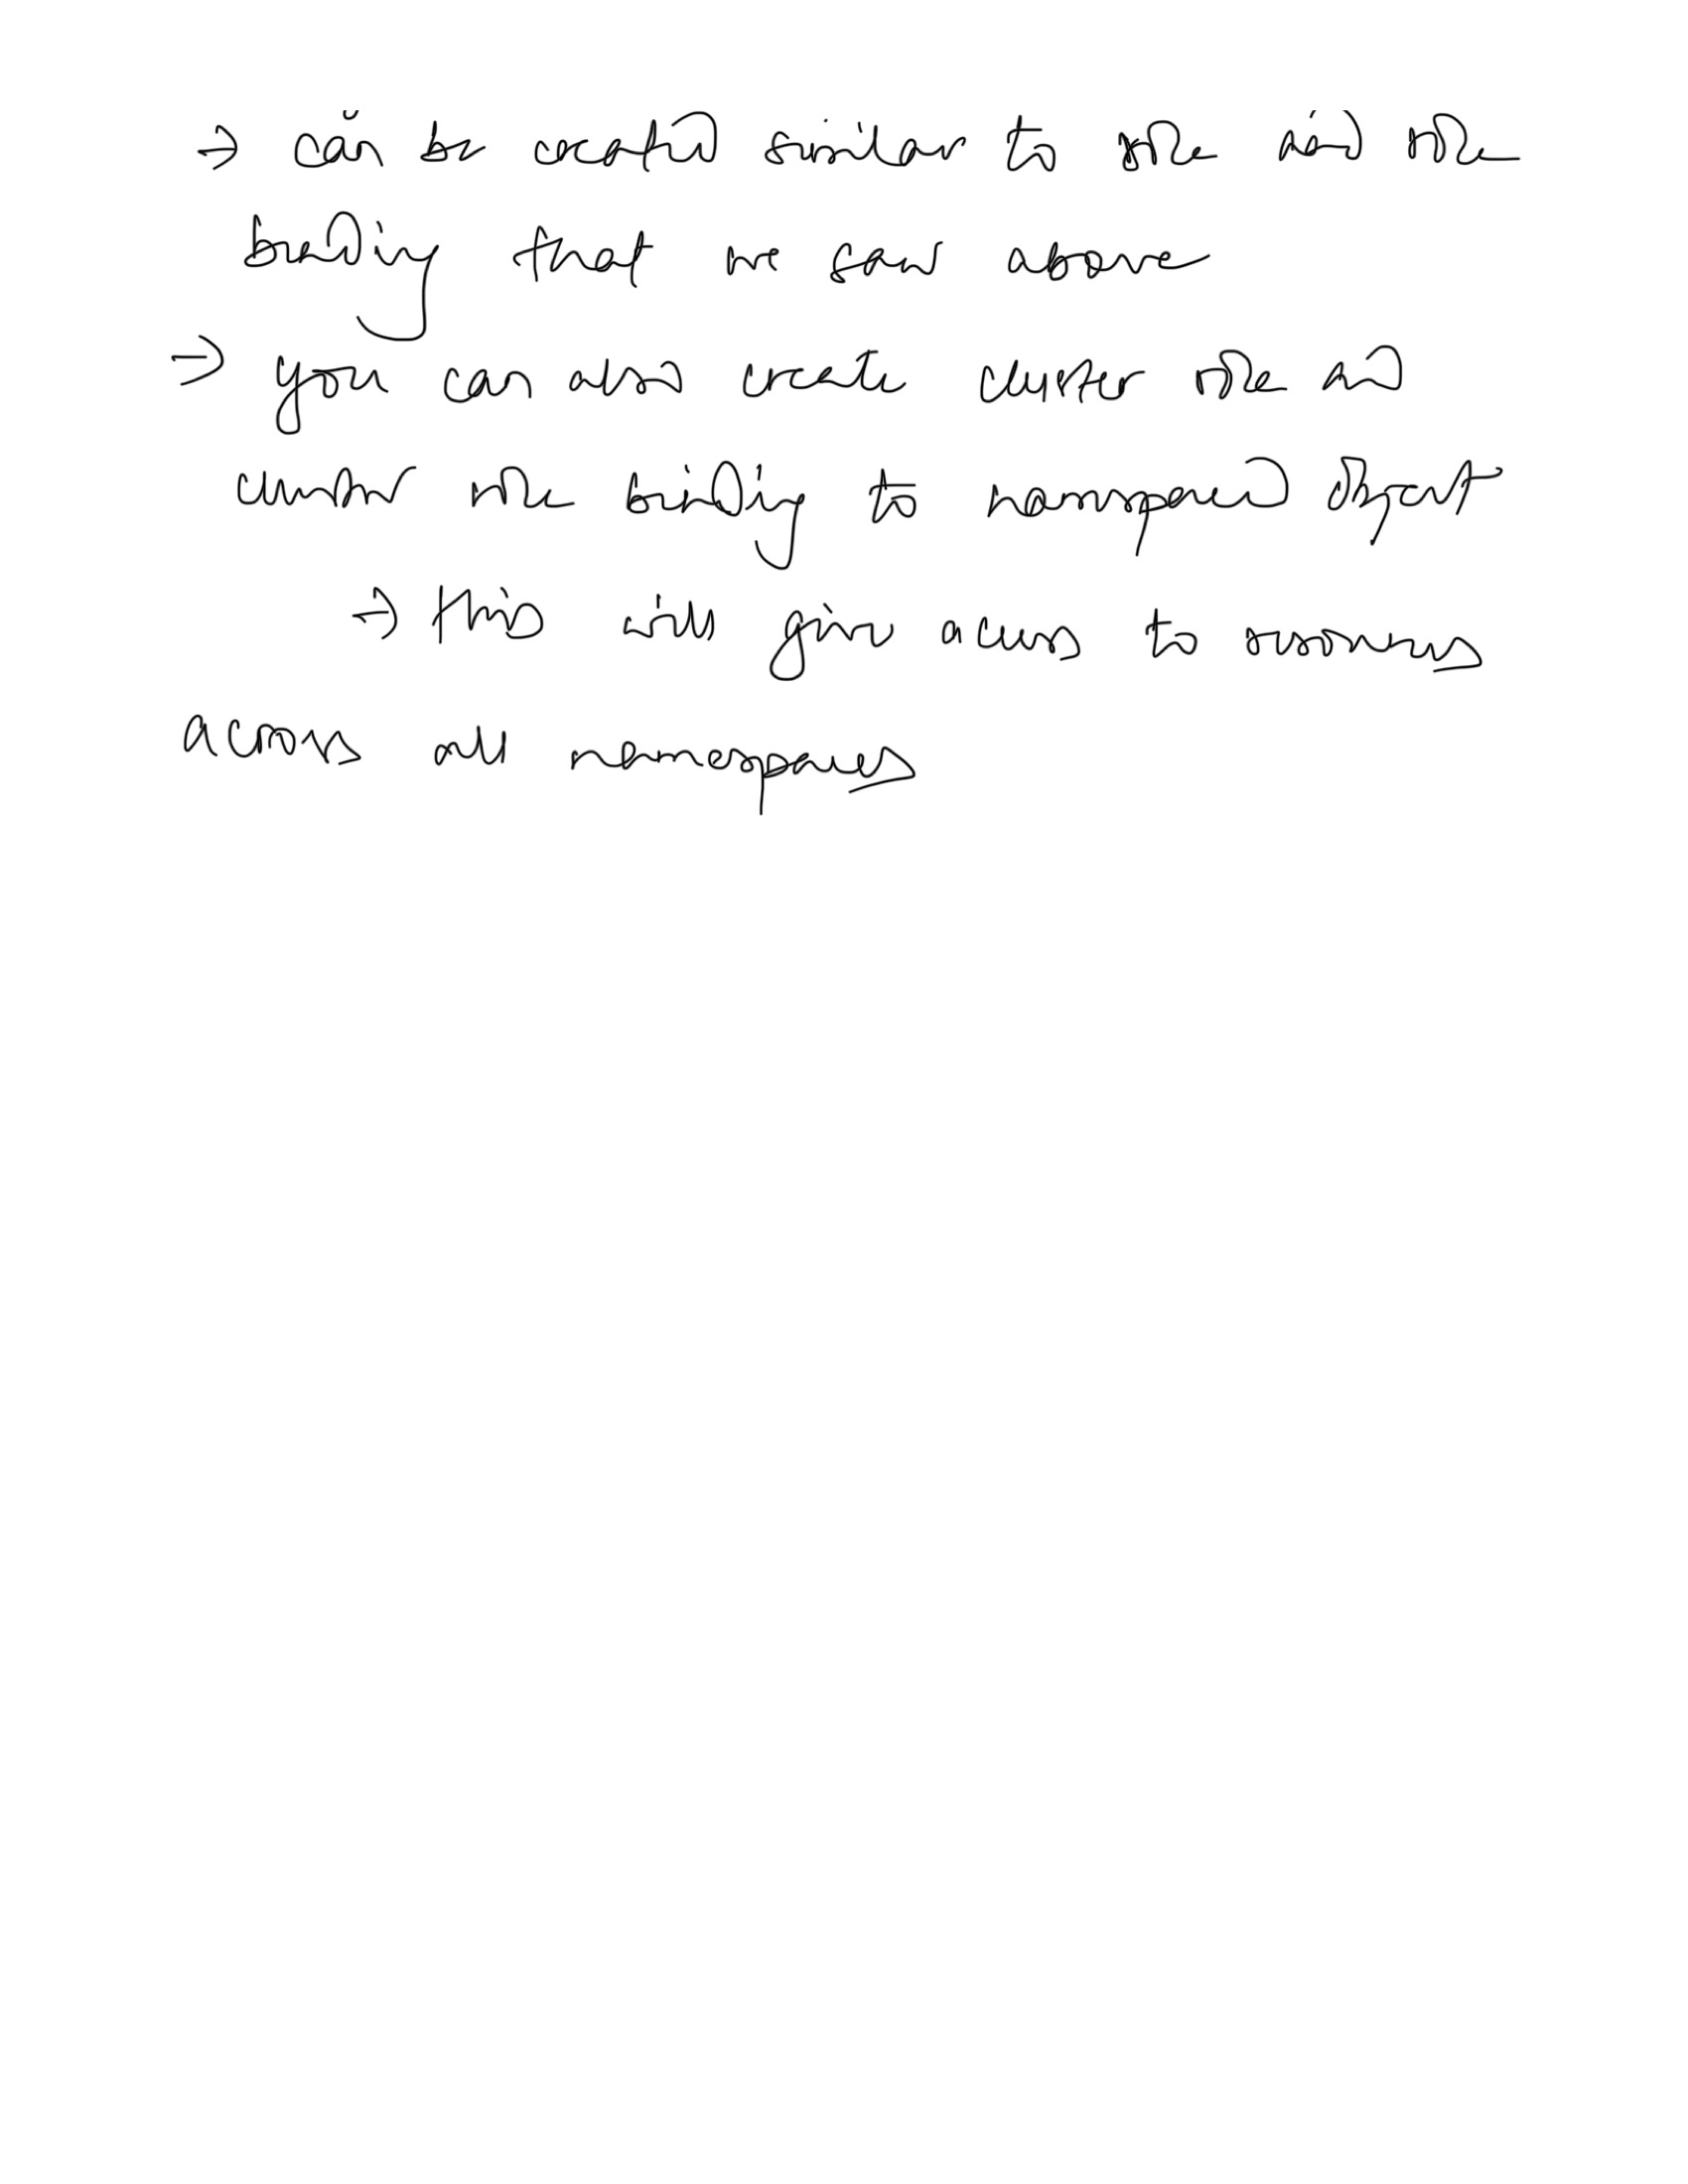 → can be created similar to role and role
binding that we saw above
→ you can also create cluster role and
cluster role binding to namespaced object
→ this will give access to resources
across all namespaces